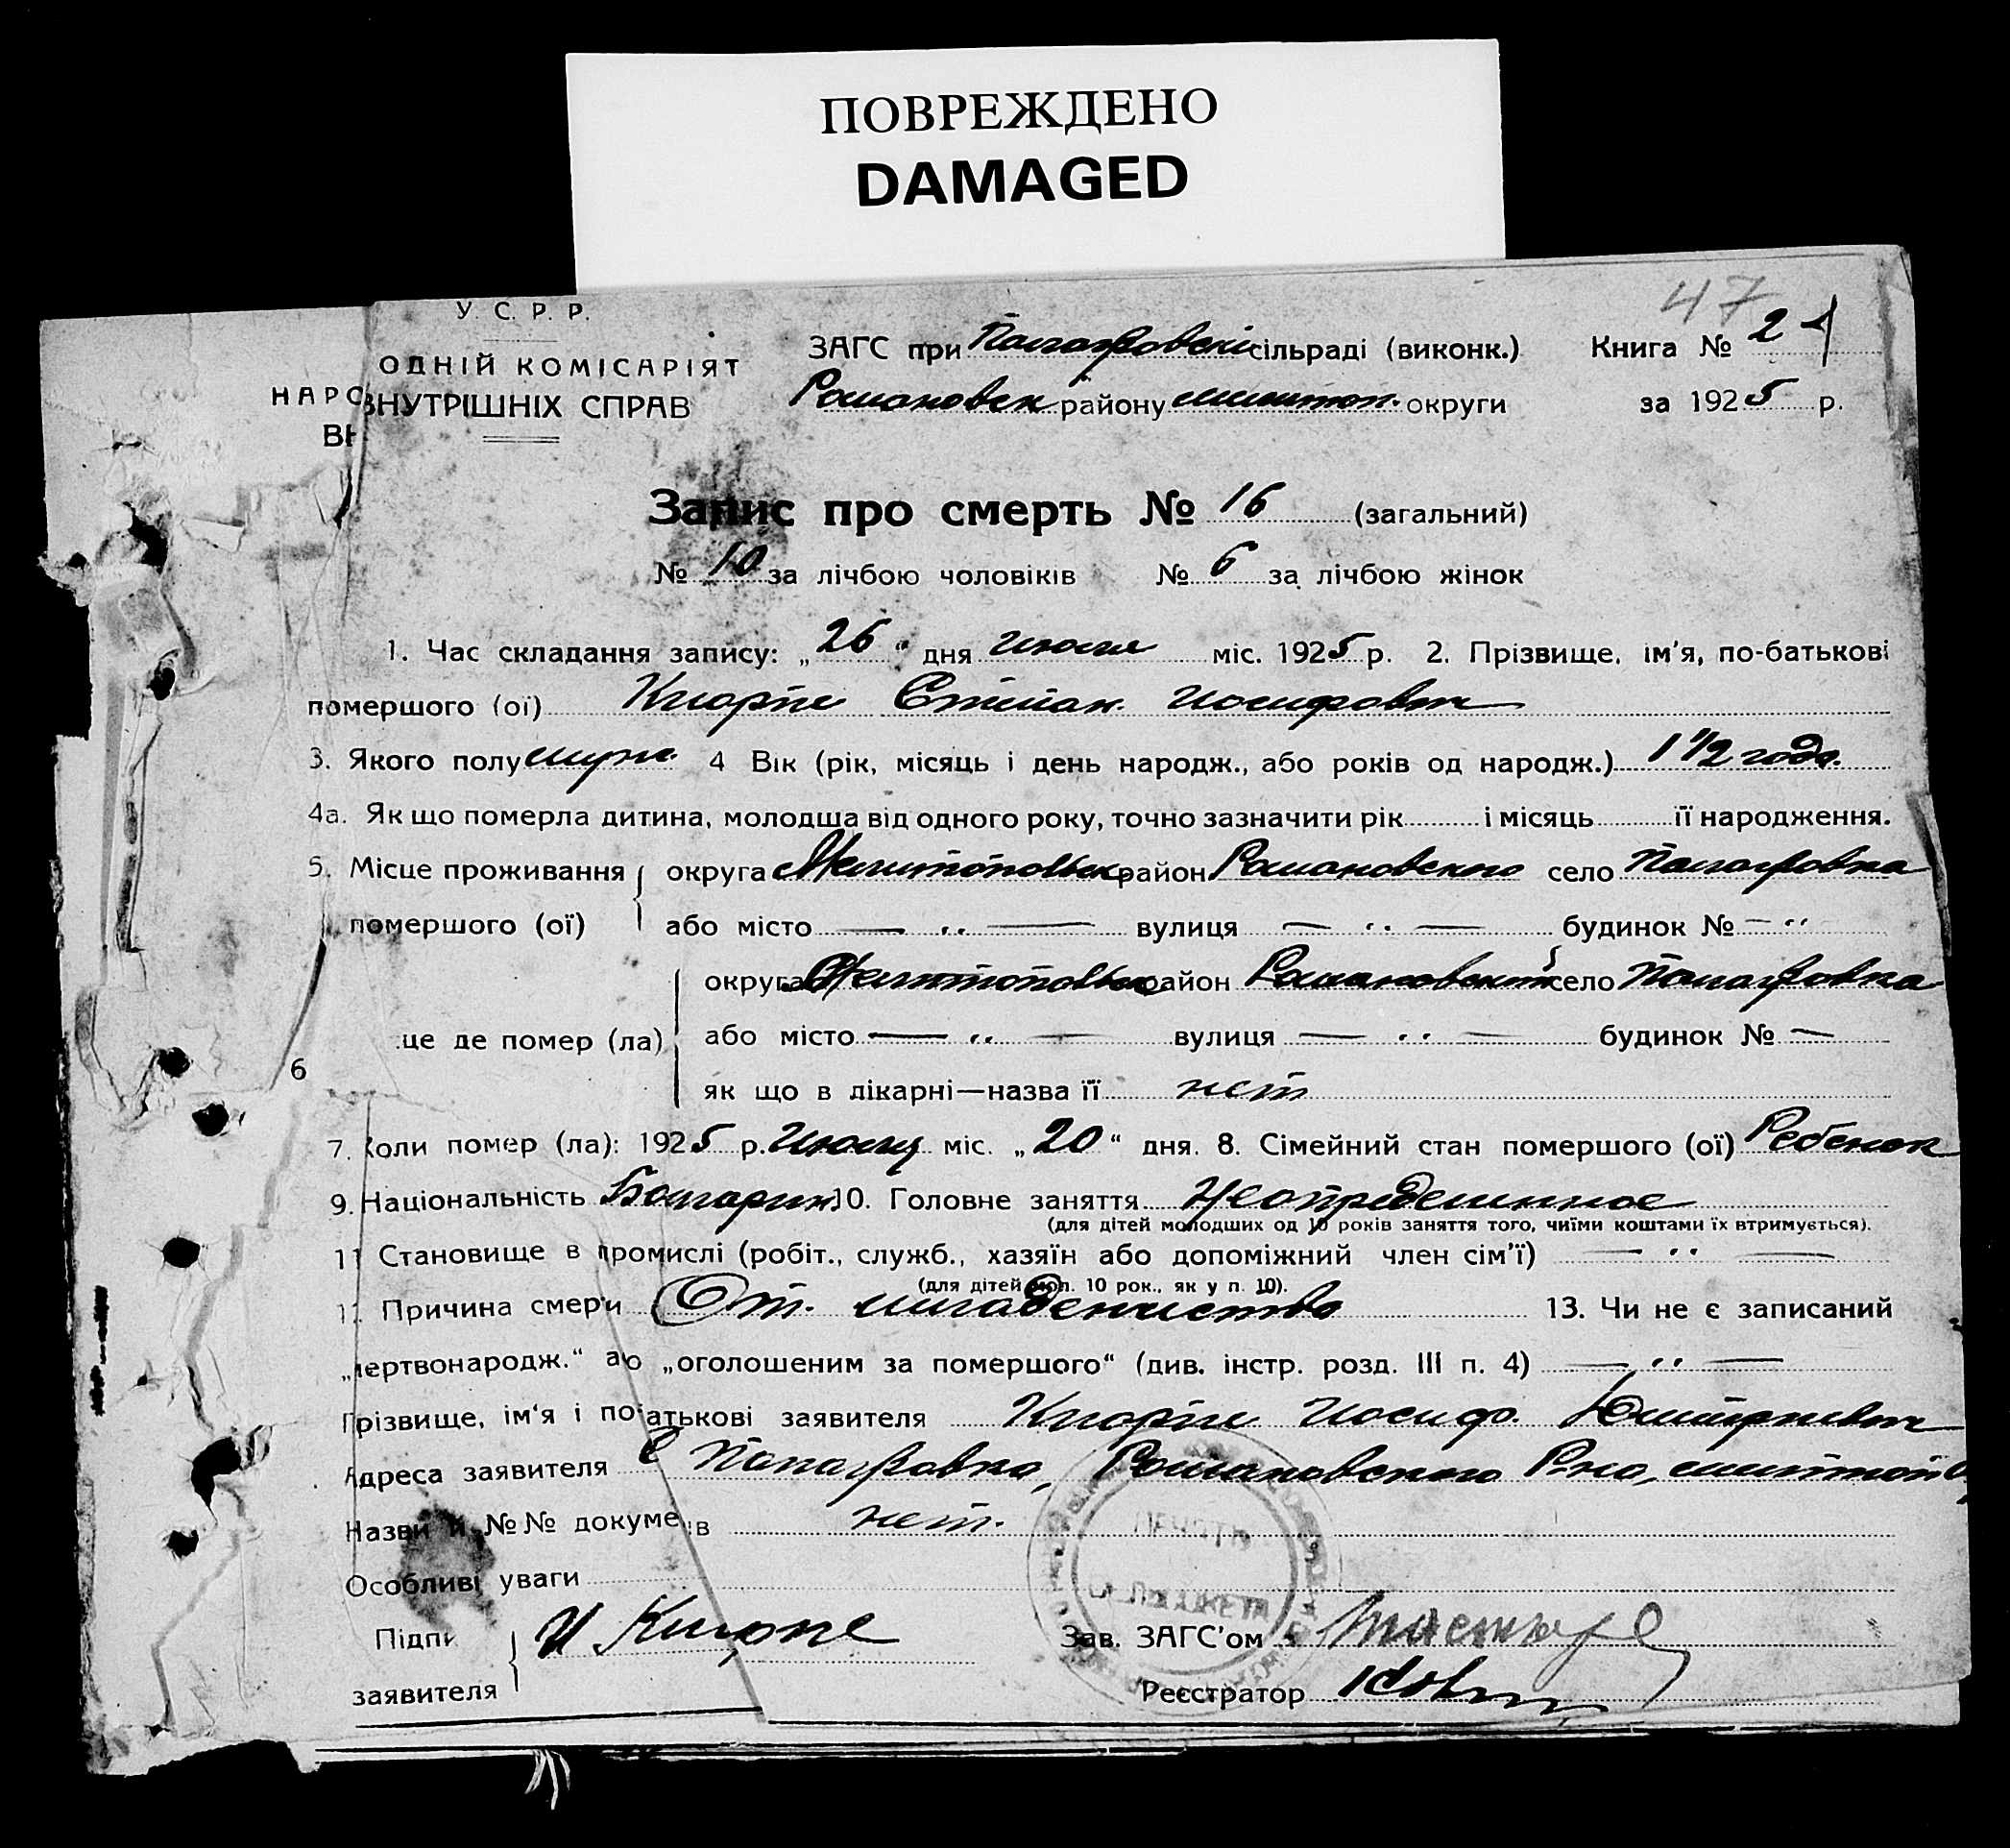 ПОВРЕЖДЕНО
DAMAGED
47
У. С. Р. Р.
ОДНІЙ КОМІСАРІЯТ
НАРО
ВНУТРІШНІХ СПРАВ
ВН
ЗАГС при сільраді (виконк.) Книга № 2
Романовск району мелитоп. округи за 1925 р.
Запис про смерть № 16 (загальний)
№ 10 за лічбою чоловіків № 6 за лічбою жінок
1. Час складання запису: „26“ дня Июля міс. 1925 р. 2. Прізвище, ім'я, по-батькові
помершого (ої) Степан Иосифович
3. Якого полу муж. 4 Вік (рік, місяць і день народж., або років од народж.) 1 1/2 года.
4а. Як що померла дитина, молодша від одного року, точно зазначити рік і місяць її народження.
5. Місце проживання округа Мелитопольск район Романовского село
помершого (ої) або місто — „ — вулиця — „ — будинок № — „
округа Мелитопольск район Романовский село
6 це де помер (ла) або місто — „ — вулиця — „ — будинок № —
як що в лікарні—назва її нет
7. Коли помер (ла): 1925 р. Июля міс. „20“ дня. 8. Сімейний стан помершого (ої) Ребенок
9. Національність Болгарин 10. Головне заняття Неопределенное
(для дітей молодших од 10 років заняття того, чиїми коштами їх втримується).
11 Становище в промислі (робіт., служб., хазяїн або допоміжний член сім'ї) — „ —
(для дітей мол. 10 рок., як у п. 10).
Причина смерти От младенчества 13. Чи не є записаний
„мертвонародж.“ або „оголошеним за помершого“ (див. інстр. розд. III п. 4) — „ —
Прізвище, ім'я і по-батькові заявителя Иосиф Дмитриевич
Адреса заявителя с Романовского Р-на, мелитоп о
Назви й №№ документів нет.
Особливі уваги
Підпис И
заявителя
ПЕЧАТЬ
Зав. ЗАГС'ом
Реєстратор